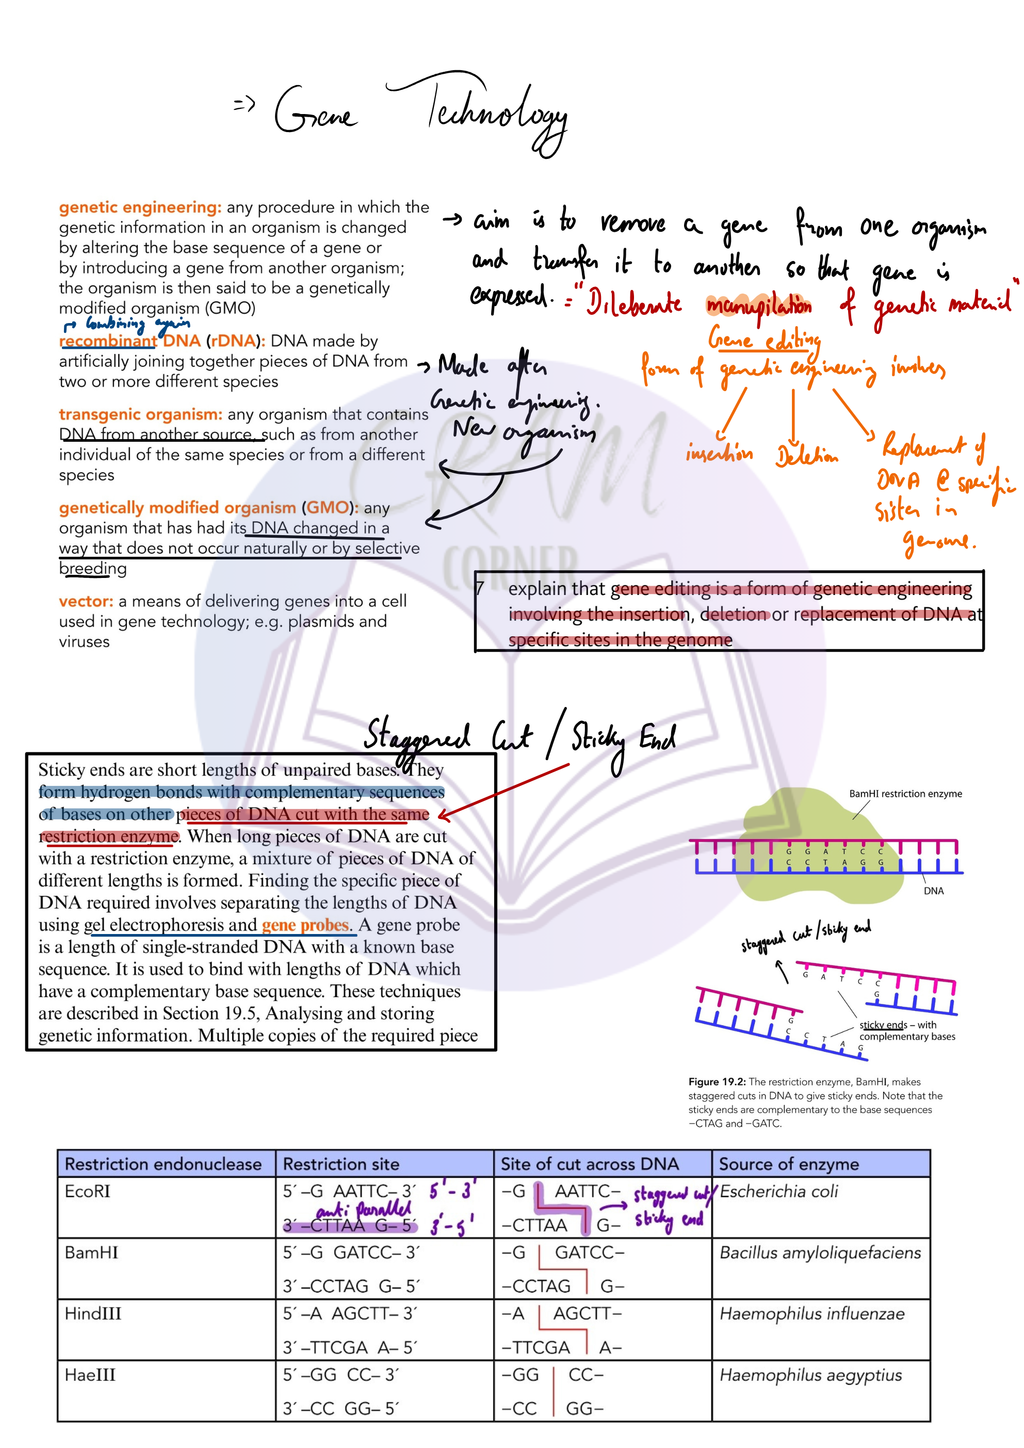 => Gene Technology
genetic engineering: any procedure in which the
genetic information in an organism is changed
by altering the base sequence of a gene or
by introducing a gene from another organism;
the organism is then said to be a genetically
modified organism (GMO)
→ aim is to remove a gene from one organism
and transfer it to another so that gene is
expressed. = "Dileberate manupilation of genetic material"
Gene editing
form of genetic engineering involves
insertion
Deletion
Replacement of
DNA @ specific
sister in
genome.
→ Combining again
recombinant DNA (rDNA): DNA made by
artificially joining together pieces of DNA from
two or more different species
→ Made after
Genetic engineering.
New organism
transgenic organism: any organism that contains
DNA from another source, such as from another
individual of the same species or from a different
species
genetically modified organism (GMO): any
organism that has had its DNA changed in a
way that does not occur naturally or by selective
breeding
vector: a means of delivering genes into a cell
used in gene technology; e.g. plasmids and
viruses
CRAM
CORNER
7 explain that gene editing is a form of genetic engineering
involving the insertion, deletion or replacement of DNA at
specific sites in the genome
Staggered Cut / Sticky End
Sticky ends are short lengths of unpaired bases. They
form hydrogen bonds with complementary sequences
of bases on other pieces of DNA cut with the same
restriction enzyme. When long pieces of DNA are cut
with a restriction enzyme, a mixture of pieces of DNA of
different lengths is formed. Finding the specific piece of
DNA required involves separating the lengths of DNA
using gel electrophoresis and gene probes. A gene probe
is a length of single-stranded DNA with a known base
sequence. It is used to bind with lengths of DNA which
have a complementary base sequence. These techniques
are described in Section 19.5, Analysing and storing
genetic information. Multiple copies of the required piece
BamHI restriction enzyme
G G A T C C
C C T A G G
DNA
staggered cut/sticky end
G A T C C
G
G
C C T A G
sticky ends – with
complementary bases
Figure 19.2: The restriction enzyme, BamHI, makes
staggered cuts in DNA to give sticky ends. Note that the
sticky ends are complementary to the base sequences
–CTAG and –GATC.
Restriction endonuclease Restriction site Site of cut across DNA Source of enzyme
EcoRI 5´ –G AATTC– 3´ 5'-3' –G AATTC– staggered cut/ Escherichia coli
anti parallel
3´ –CTTAA G– 5´ 3'-5' –CTTAA G– sticky end
BamHI 5´ –G GATCC– 3´ –G GATCC– Bacillus amyloliquefaciens
3´ –CCTAG G– 5´ –CCTAG G–
HindIII 5´ –A AGCTT– 3´ –A AGCTT– Haemophilus influenzae
3´ –TTCGA A– 5´ –TTCGA A–
HaeIII 5´ –GG CC– 3´ –GG CC– Haemophilus aegyptius
3´ –CC GG– 5´ –CC GG–